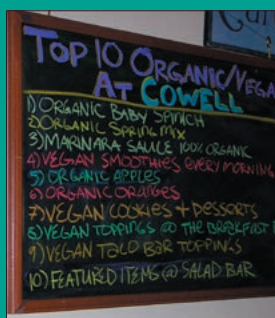 TOP 10 ORGANIC/VEGA
AT COWELL
1) ORGANIC BABY SPINICH
2) ORGANIC SPRING MIX
3) MARINARA SAUCE 100% ORGANIC
4) VEGAN SMOOTHIES EVERY MORNING
5) ORGANIC APPLES
6) ORGANIC ORANGES
7) VEGAN COOKIES + DESSERTS
8) VEGAN TOPPINGS @ THE BREAKFAST
9) VEGAN TACO BAR TOPPINGS
10) FEATURED ITEMS @ SALAD BAR